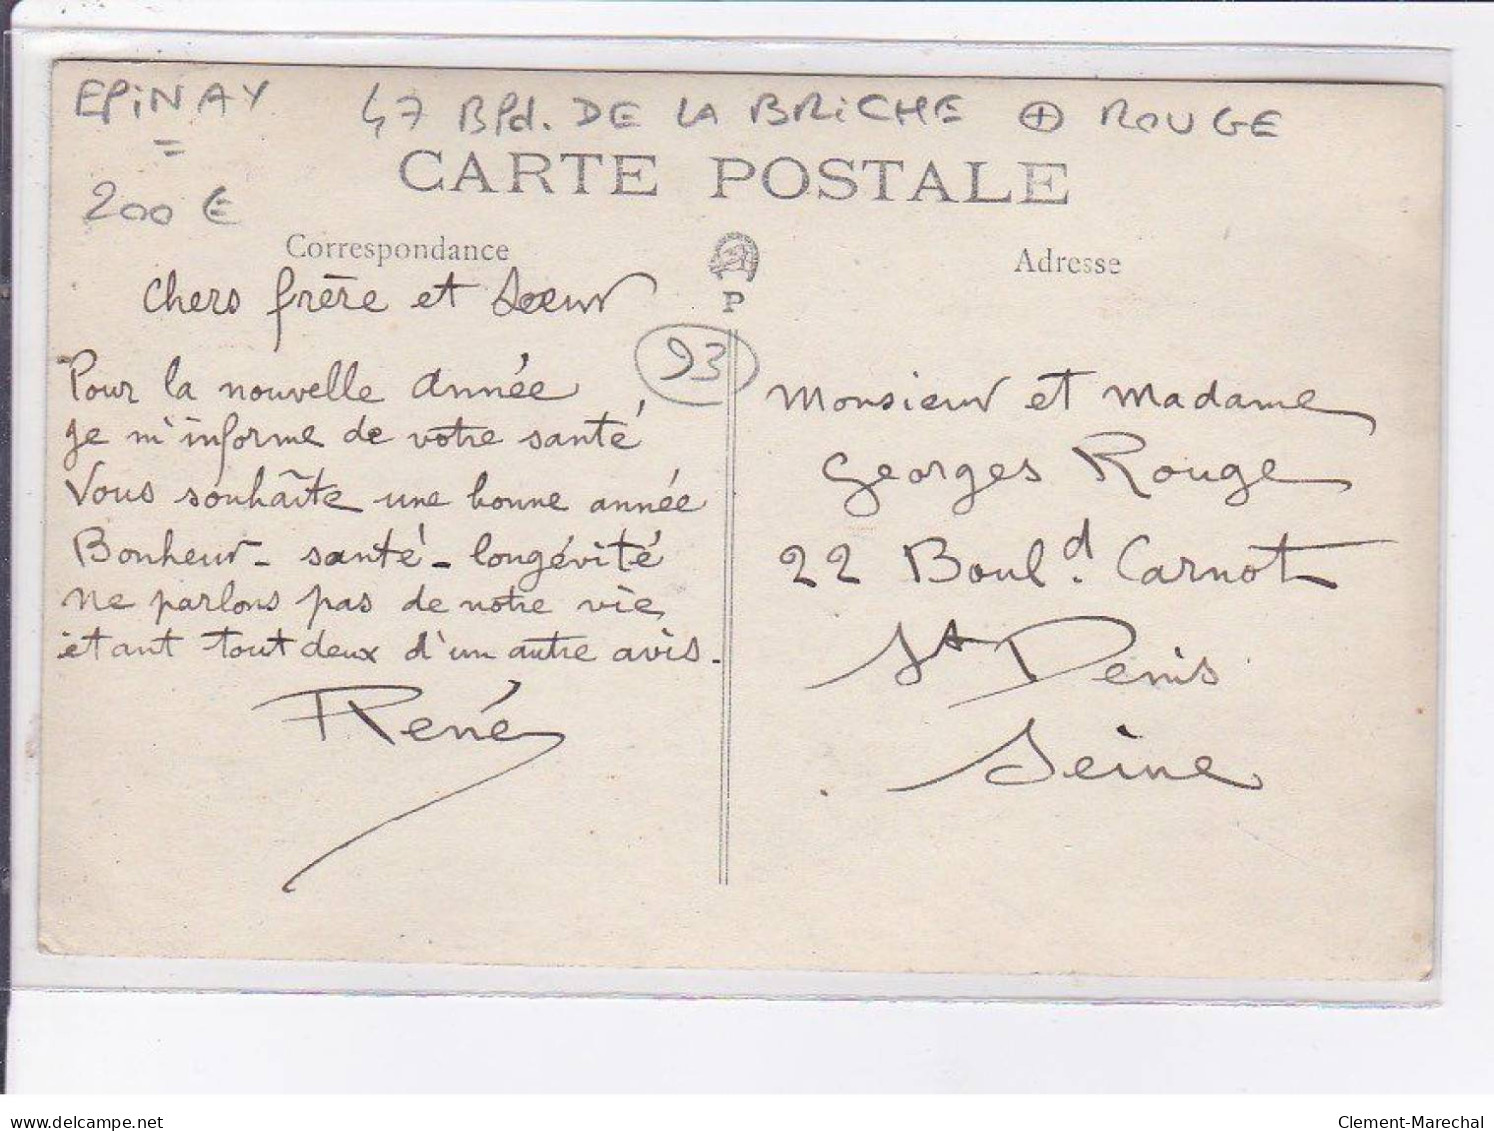 EPINAY 47 Bld. DE LA BRICHE ⊕ ROUGE
=
200 €
CARTE POSTALE
Correspondance
Adresse
P
93
Chers frère et Soeur
Pour la nouvelle année
je m'informe de votre santé
Vous souhaite une bonne année
Bonheur - santé - longévité
ne parlons pas de notre vie
étant tout deux d'un autre avis.
René
Monsieur et Madame
Georges Rouge
22 Boul.d Carnot
St Denis
Seine
www.delcampe.net
Clement-Marechal